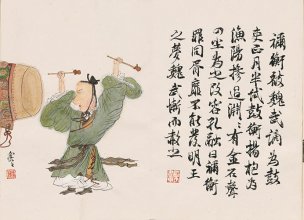 禰衡被魏武謫為鼓
吏正月半試鼓衡揚枹為
漁陽摻撾淵〻有金石聲
四坐為之改容孔融曰禰衡
罪同胥靡不能發明王
之夢魏武慚而赦之